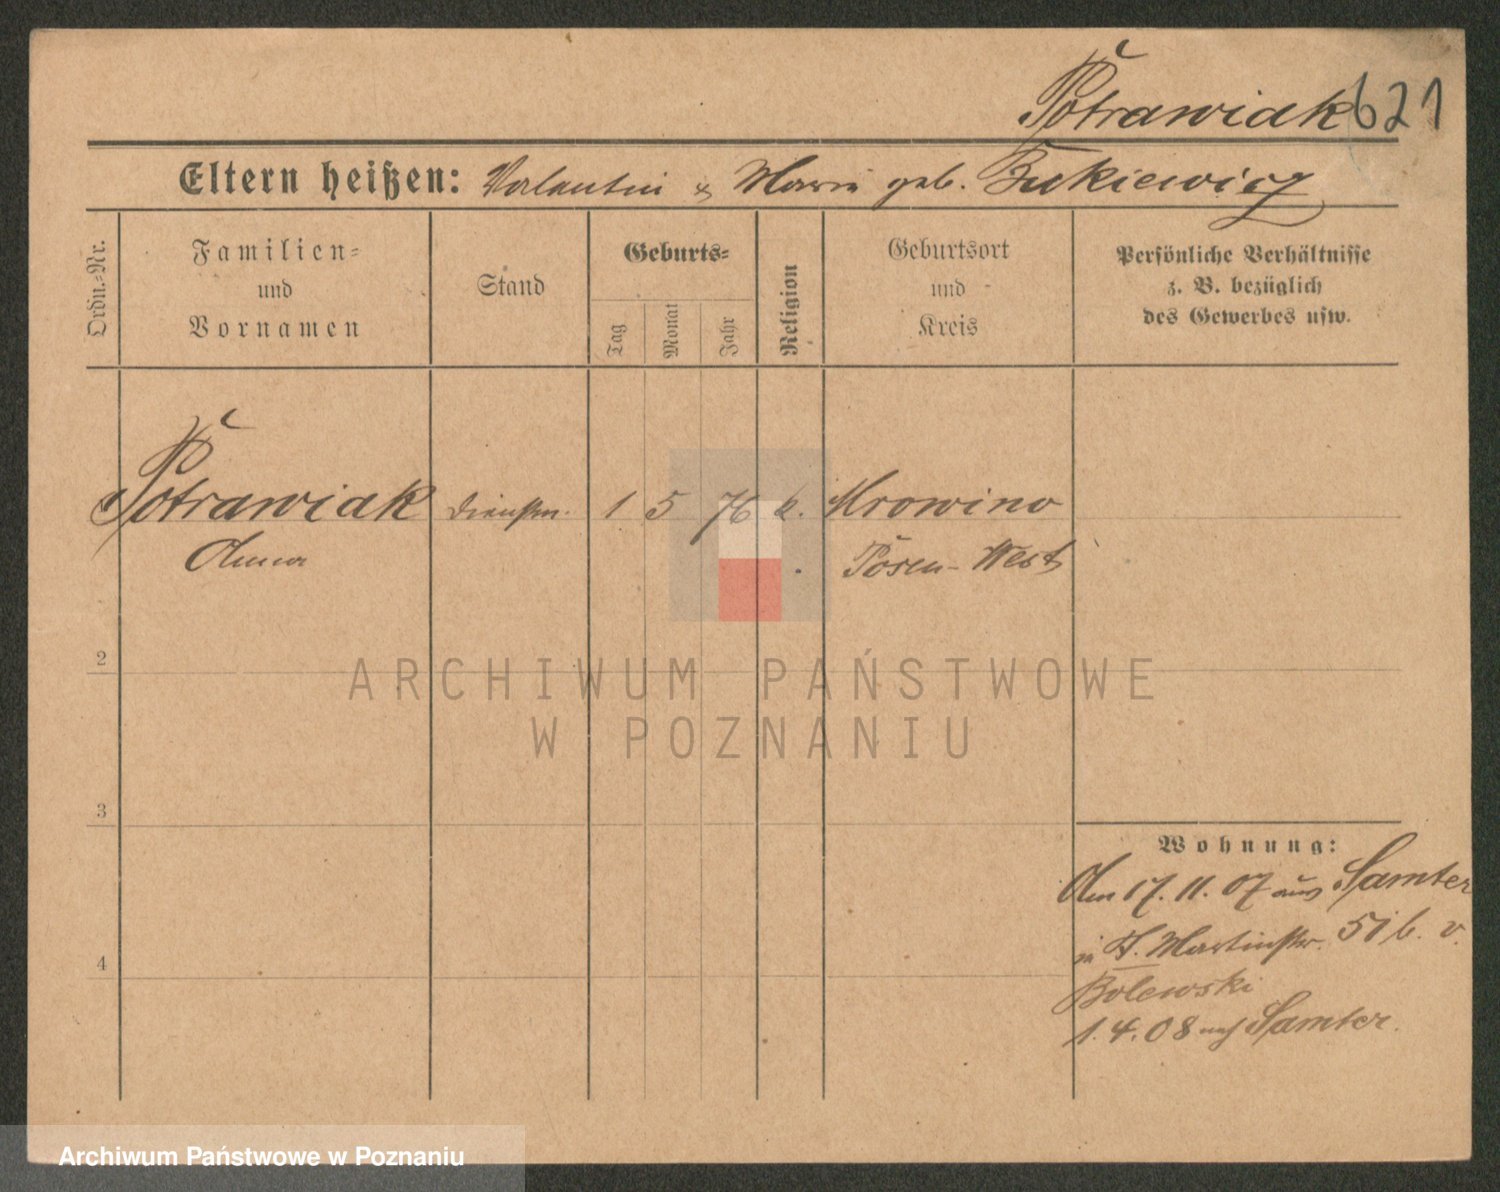 Potrawiak 621
Eltern heißen: Valentin & Maria geb. Bukiewicz
Ordn.-Nr.
Familien-
und
Vornamen
Stand
Geburts-
Tag
Monat
Jahr
Religion
Geburtsort
und
Kreis
Persönliche Verhältnisse
z. B. bezüglich
des Gewerbes usw.
Potrawiak Dienstm. 1 5 76 k. Mrowino
Anna Posen-West
2
3
4
Wohnung:
Am 17. 11. 07 aus Samter
in St. Martinstr. 51 b. v.
Bolewski
1. 4. 08 nach Samter.
ARCHIWUM PAŃSTWOWE
W POZNANIU
Archiwum Państwowe w Poznaniu